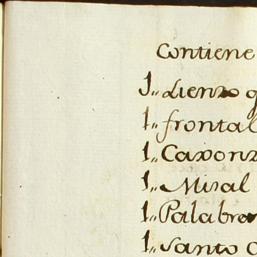 Contiene
1,, Lienzo q
1,, frontal
1,, Caxonz
1,, Misal
1,, Palabra
1,, Santo C